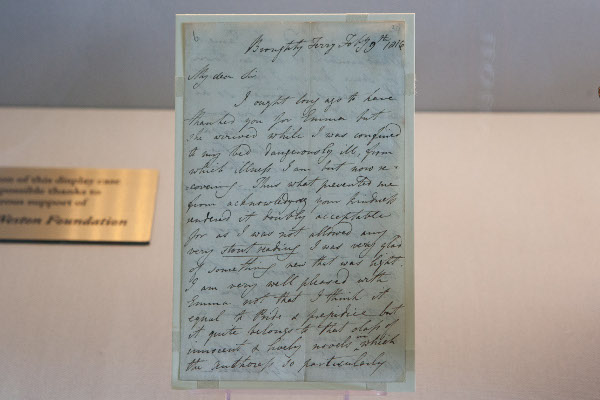 6
Broughty Ferry Feby 9th 1816
My dear Sir
I ought long ago to have
thanked you for Emma but
she arrived while I was confined
to my bed dangerously ill, from
which illness I am but now re-
covering. Thus what prevented me
from acknowledging your kindness
rendered it doubly acceptable
for as I was not allowed any
very stout reading I was very glad
of something new that was light.
I am very well pleased with
Emma not that I think it
equal to Pride & prejudice but
it quite belongs to that class of
innocent & lively novels which
the authoress so particularly
on of this display case
possible thanks to
erous support of
Weston Foundation